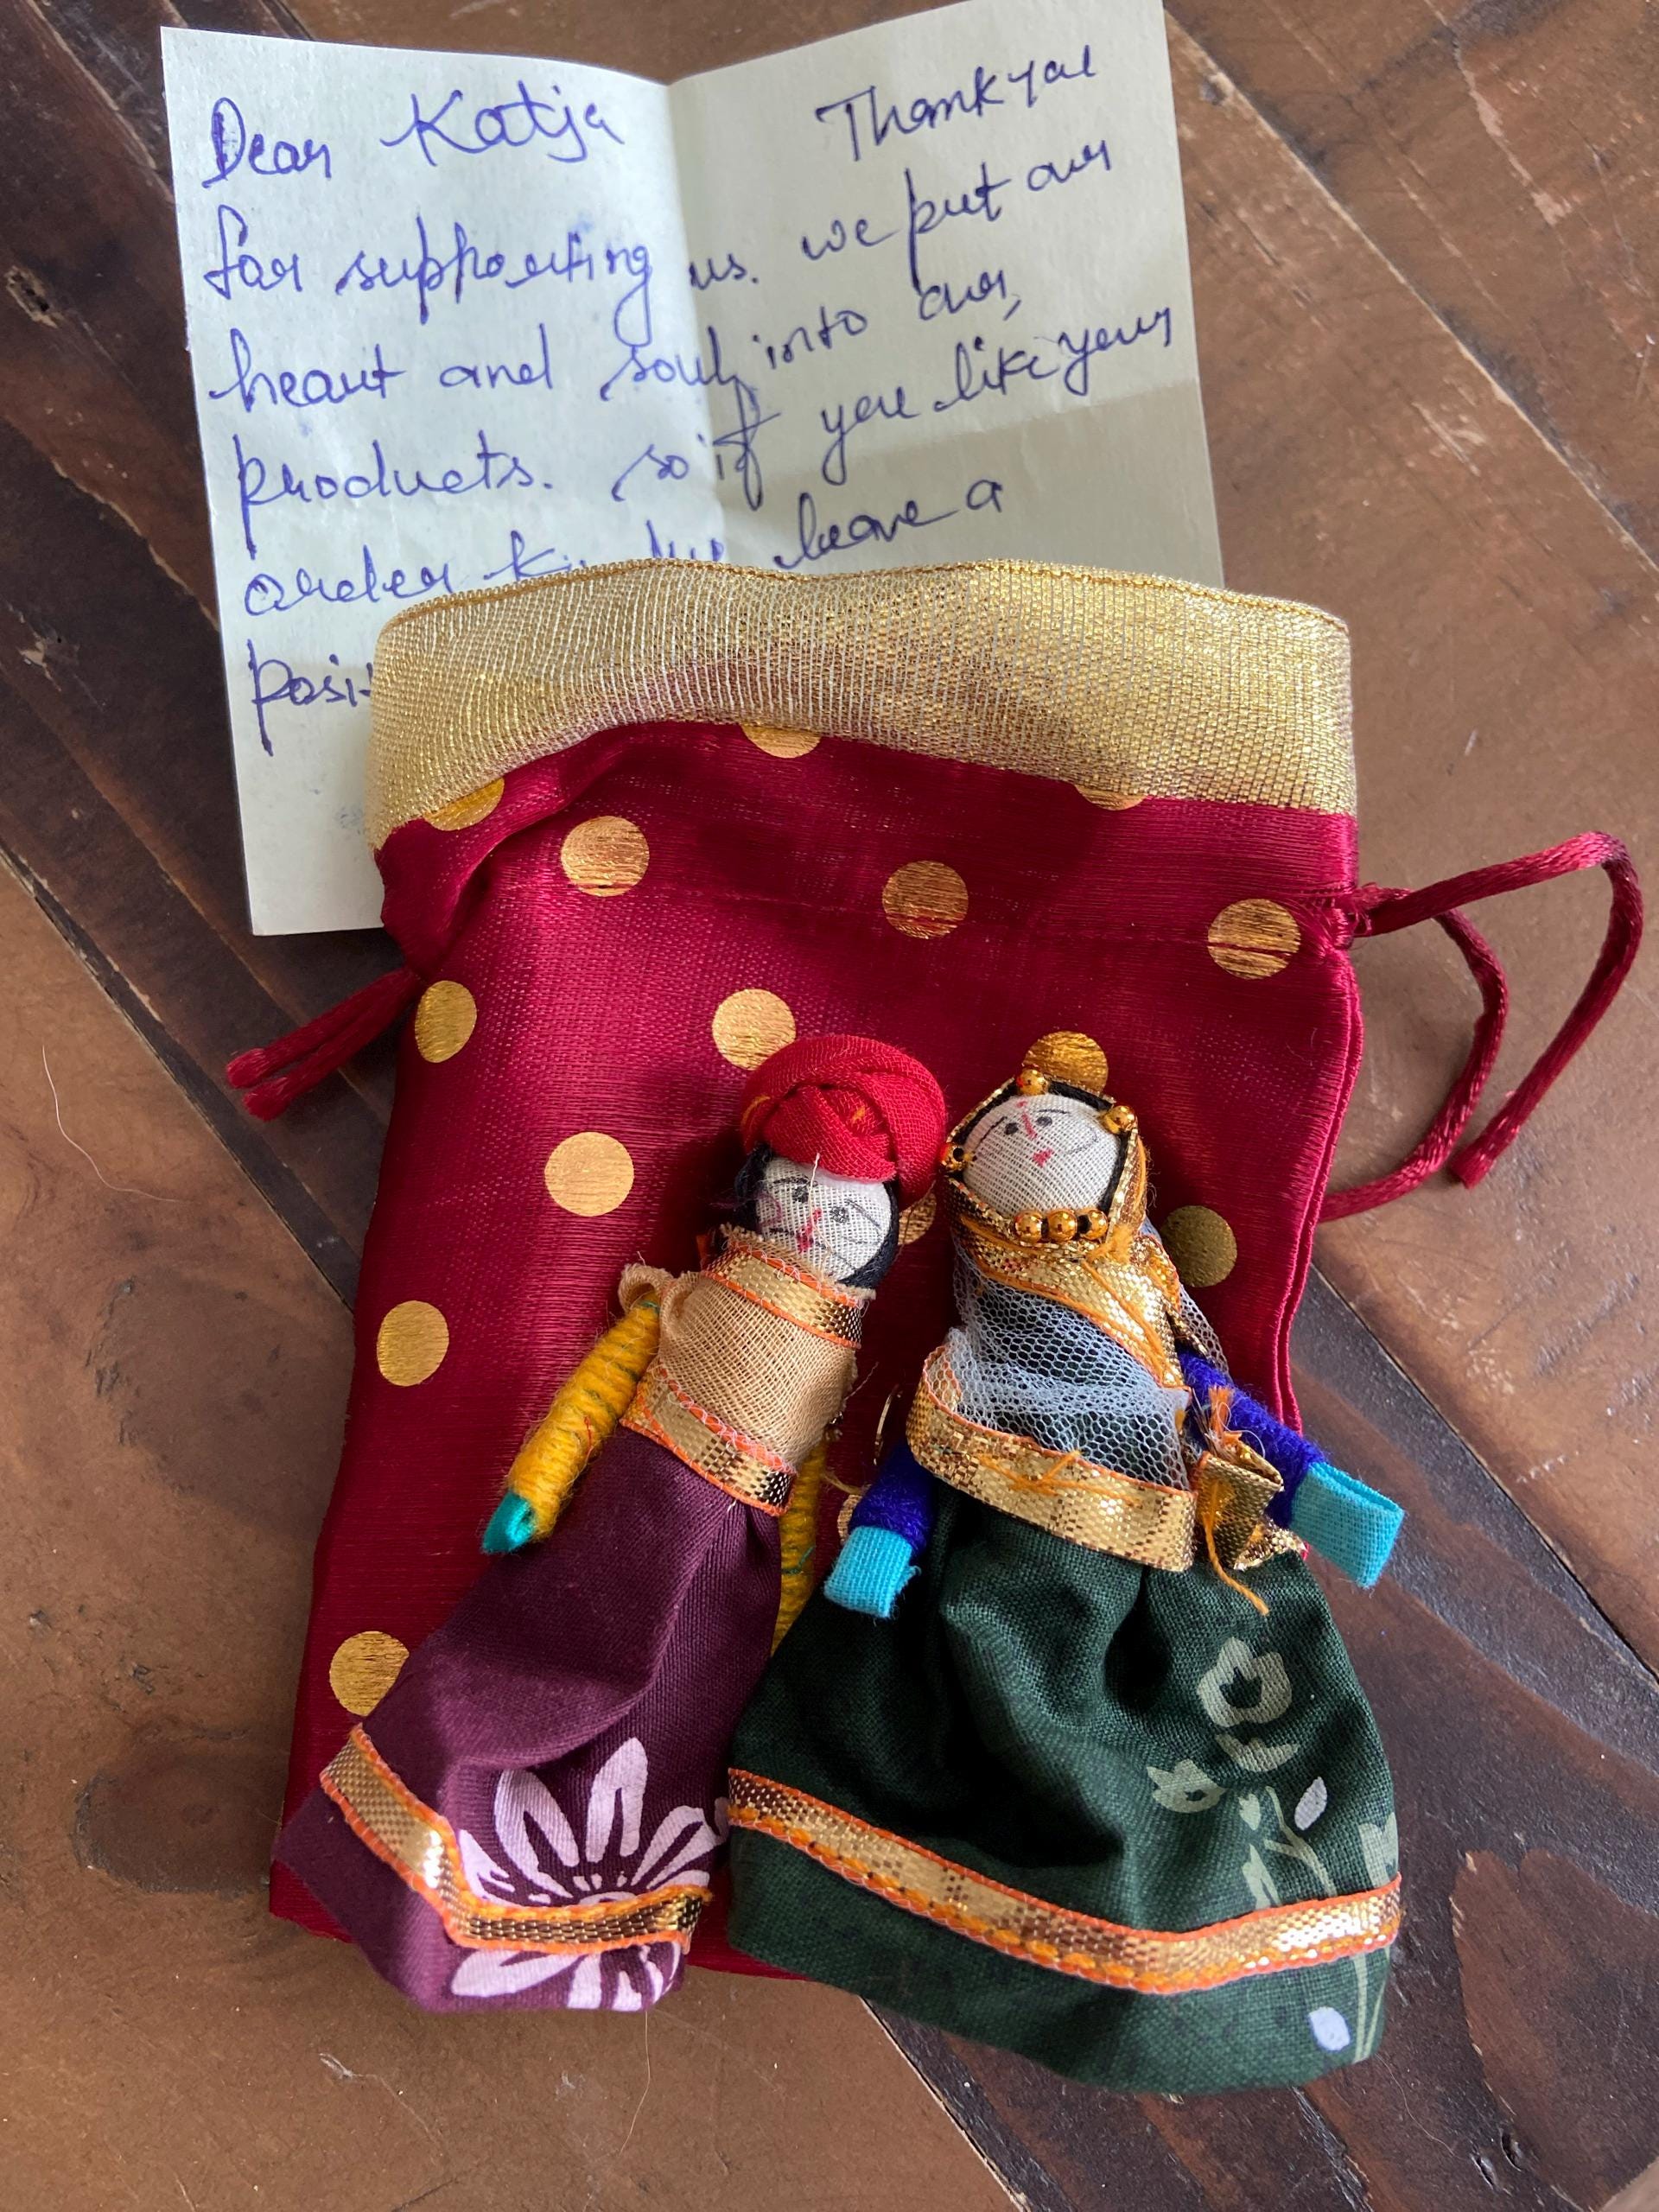 Dear Katja Thank you
for supporting us. we put our
heart and soul into our
products. so if you like your
order kindly leave a
posit